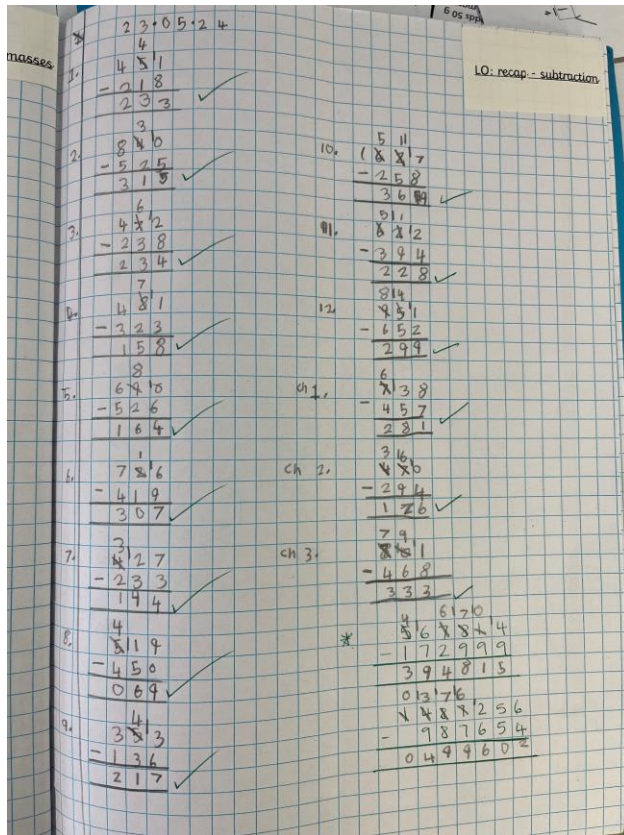 masses
23.05.24
LO: recap - subtraction
4
1. 451
- 218
233
3
2. 840
- 525
315
6
3. 472
- 238
234
7
4. 481
- 323
158
8
5. 690
- 526
164
1
6. 726
- 419
307
3
7. 427
- 233
194
4
8. 519
- 450
069
4
9. 353
- 136
217
5 11
10.
- 258
3659
5 1
11. 622
- 394
228
8 14
12. 951
- 652
299
6
ch 1. 738
- 457
281
3 16
ch 2. 470
- 294
176
7 9
ch 3. 801
- 468
333
*
- 172999
394815
- 987654
0499602